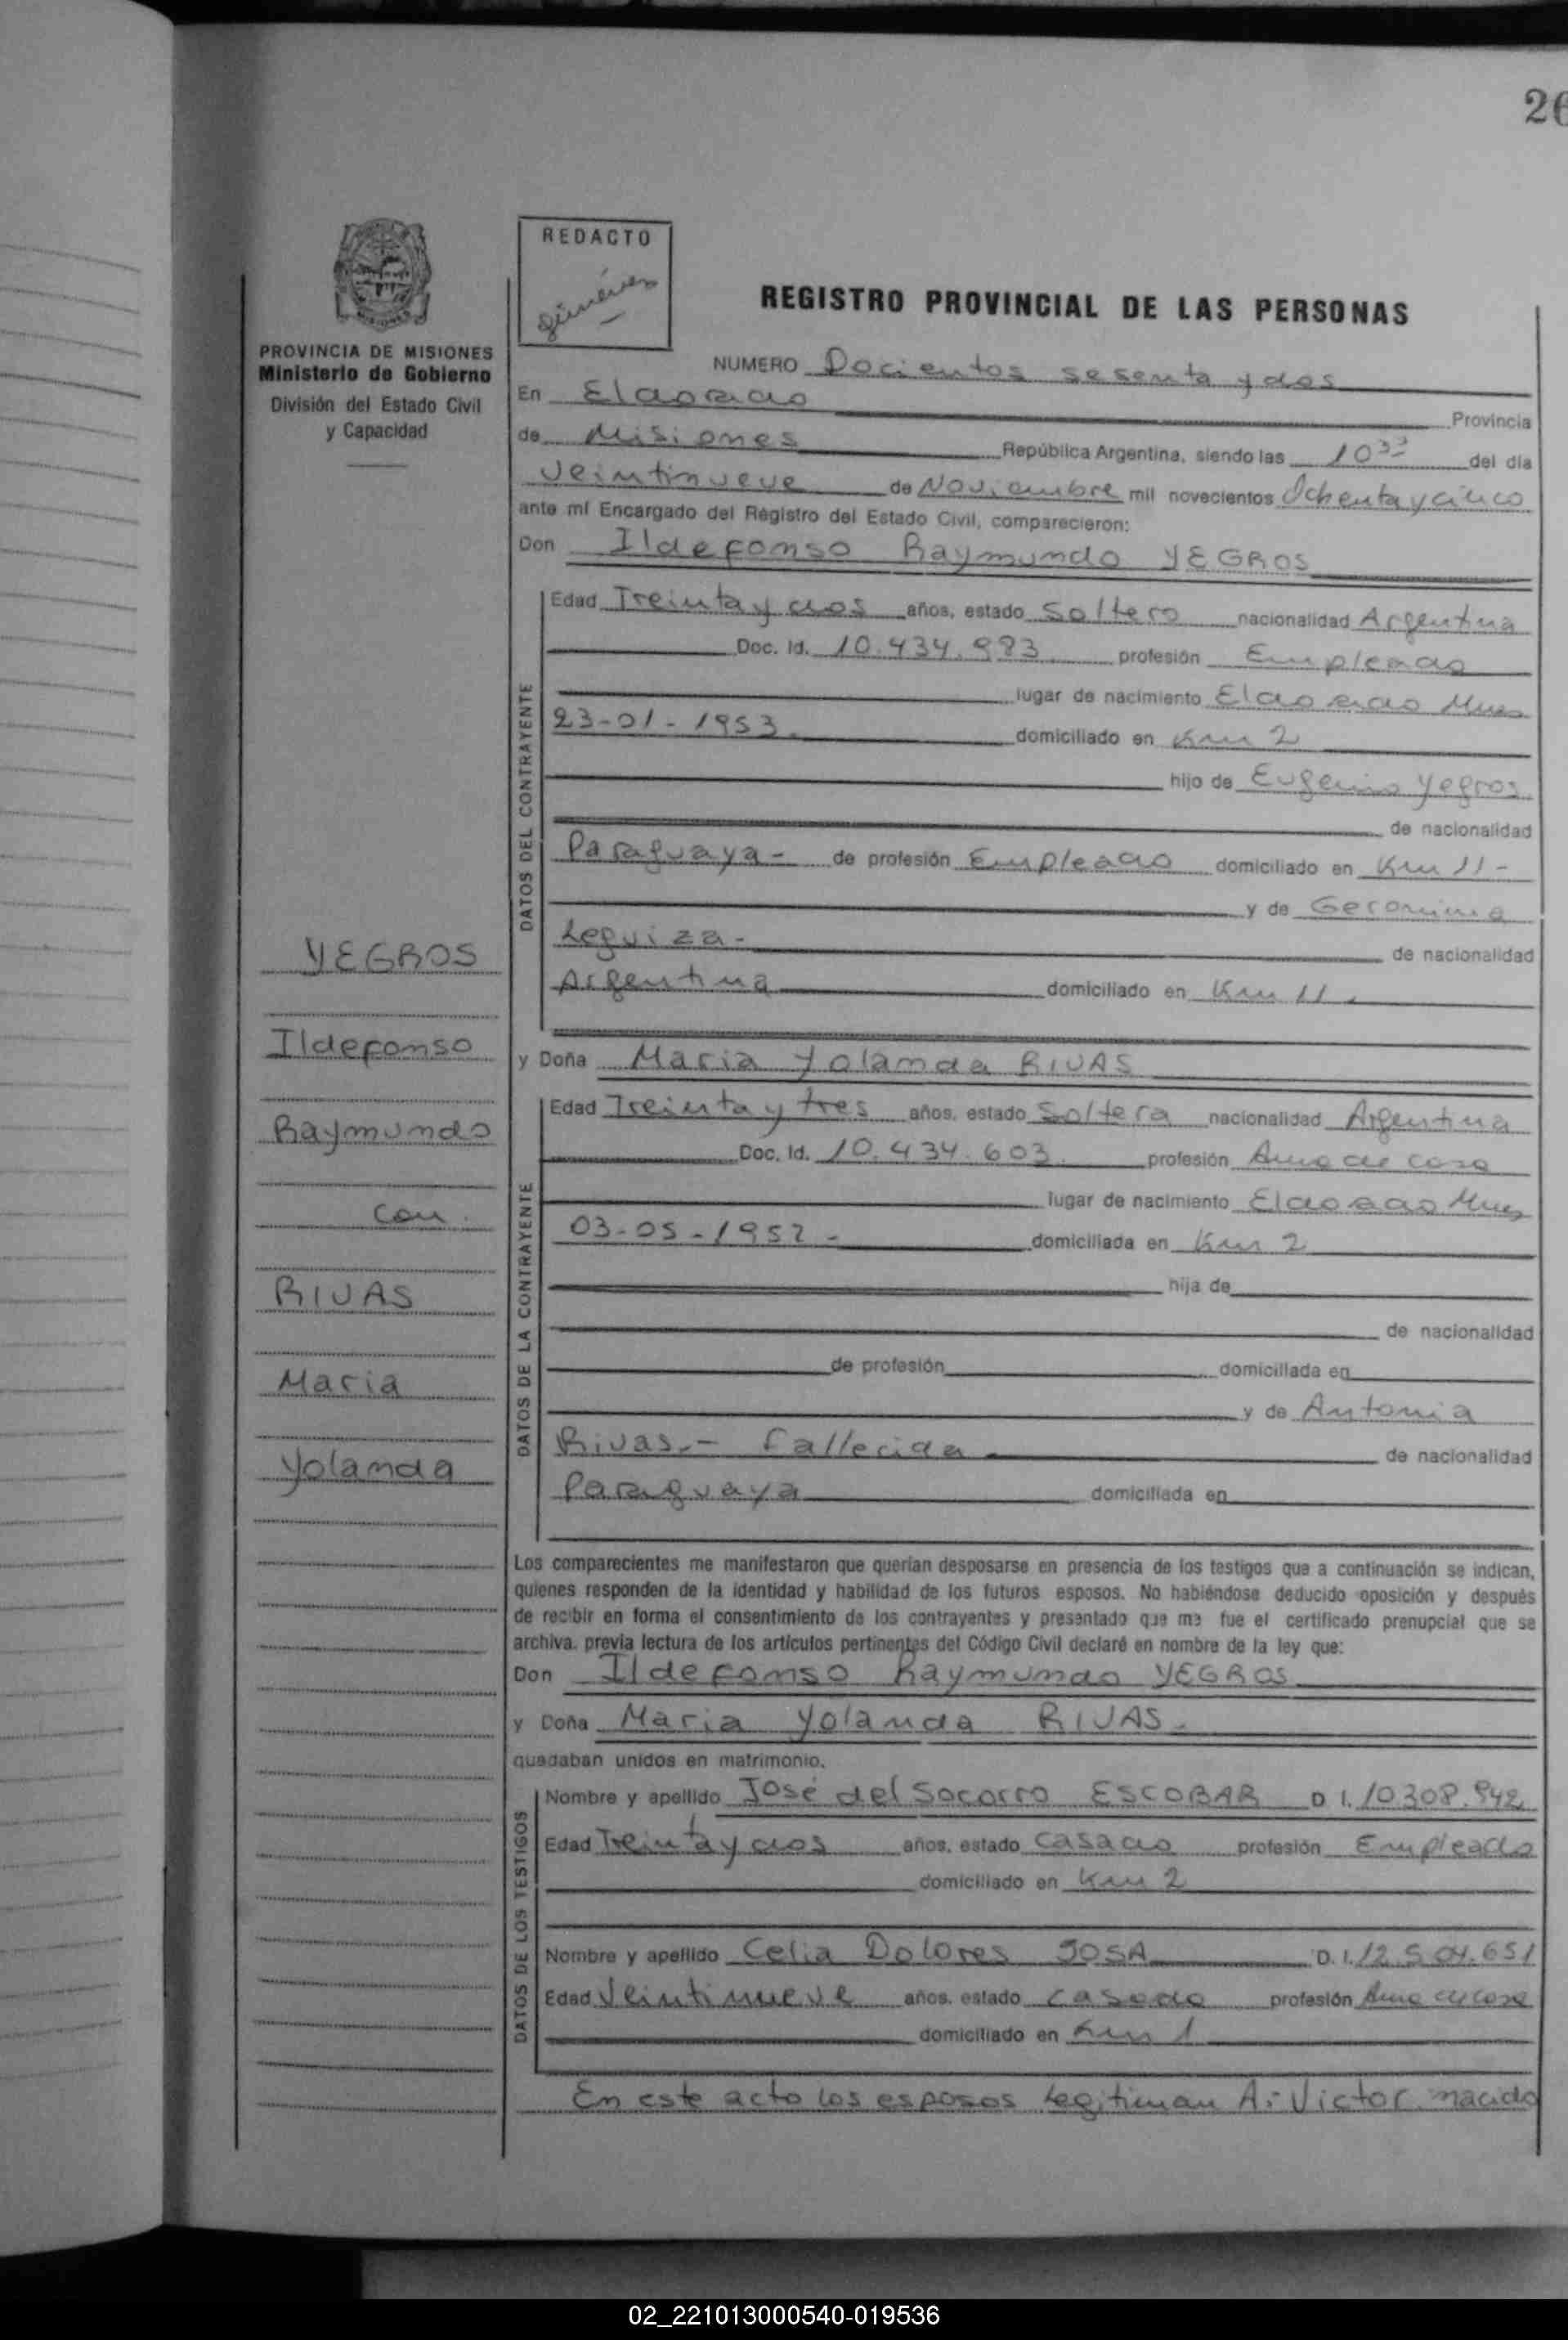 26
REDACTO
REGISTRO PROVINCIAL DE LAS PERSONAS
PROVINCIA DE MISIONES
Ministerio de Gobierno
División del Estado Civil
y Capacidad
NUMERO Docientos sesenta y dos
En Eldorado Provincia
de Misiones República Argentina, siendo las 10 del día
Veintinueve de Noviembre mil novecientos Ochenta y cinco
ante mí Encargado del Registro del Estado Civil, comparecieron:
Don Ildefonso Raymundo YEGROS
DATOS DEL CONTRAYENTE
Edad Treinta y dos años, estado Soltero nacionalidad Argentina
Doc. Id. 10.434.983 profesión Empleado
lugar de nacimiento Eldorado Mnes
23-01-1953. domiciliado en Km 2
hijo de Eugenio Yegros.
de nacionalidad
Paraguaya - de profesión Empleado domiciliado en Km 11-
y de Geronima
Leguiza - de nacionalidad
Argentina domiciliado en Km 11.
YEGROS
Ildefonso
Raymundo
con.
RIVAS
Maria
Yolanda
y Doña Maria Yolanda RIVAS
DATOS DE LA CONTRAYENTE
Edad Treinta y tres años, estado Soltera nacionalidad Argentina
Doc. Id. 10.434.603. profesión Ama de casa
lugar de nacimiento Eldorado Mnes
03-05-1952 - domiciliada en Km 2
hija de
de nacionalidad
de profesión domiciliada en
y de Antonia
Rivas.- Fallecida - de nacionalidad
Paraguaya domiciliada en
Los comparecientes me manifestaron que querían desposarse en presencia de los testigos que a continuación se indican,
quienes responden de la identidad y habilidad de los futuros esposos. No habiéndose deducido oposición y después
de recibir en forma el consentimiento de los contrayentes y presentado que me fue el certificado prenupcial que se
archiva, previa lectura de los artículos pertinentes del Código Civil declaré en nombre de la ley que:
Don Ildefonso Raymundo YEGROS
y Doña Maria Yolanda RIVAS -
quedaban unidos en matrimonio.
DATOS DE LOS TESTIGOS
Nombre y apellido José del Socorro ESCOBAR D I. 10.308.942
Edad Treinta y dos años, estado Casado profesión Empleado
domiciliado en Km 2
Nombre y apellido Celia Dolores SOSA D. I. 12.504.651
Edad Veintinueve años, estado Casado profesión Ama de casa
domiciliado en Km 1
En este acto los esposos Legitiman A: Victor nacido
02_221013000540-019536